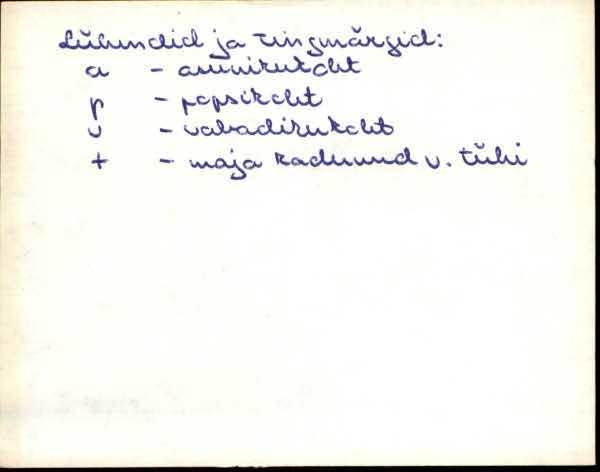 Lühendid ja tingmärgid:
a - asunikukoht
p - popsikoht
v - vabadikukoht
+ - maja kadunud v. tühi